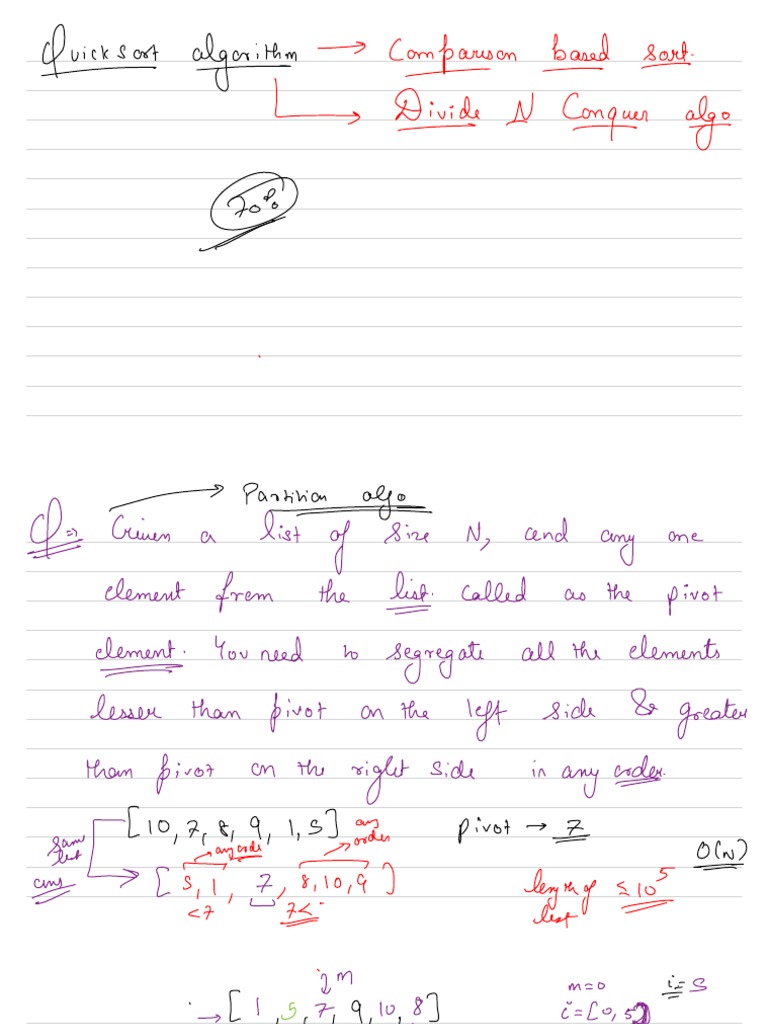 Quicksort algorithm → Comparison based sort.
→ Divide N Conquer algo
70%
→ Partition algo
Q⇒ Given a list of size N, and any one
element from the list. called as the pivot
element. You need to segregate all the elements
lesser than pivot on the left side & greater
than pivot on the right side in any order.
[10, 7, 8, 9, 1, 5] any order pivot → 7
same list any order O(N)
ans → [5, 1, 7, 8, 10, 9] length of list ≤ 10^5
<7 7<
i m m=0 i=5
→ [1, 5, 7, 9, 10, 8] i=[0, 5]